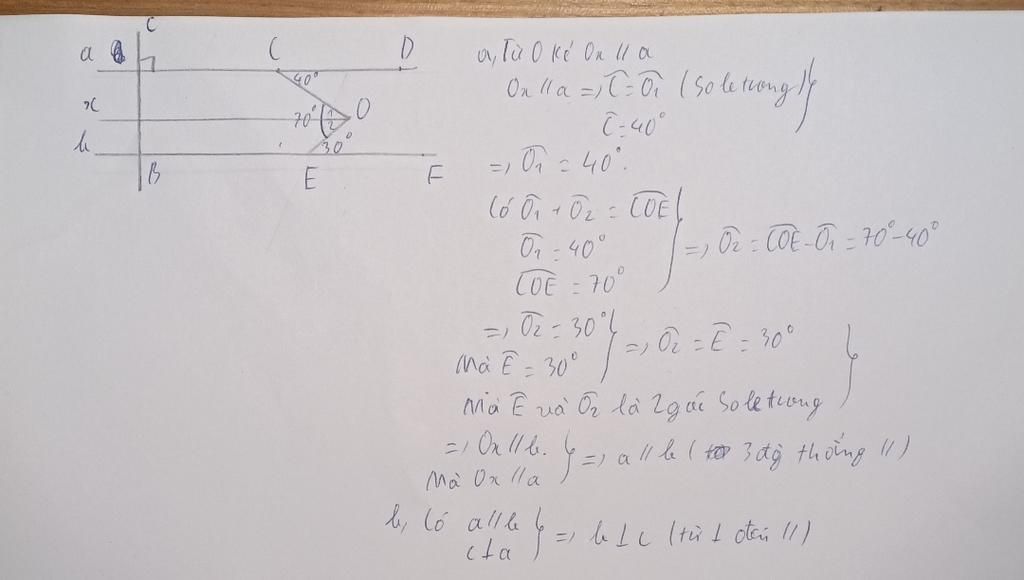 c
a C D
40°
x 70° 1 2 O
b 30°
B E F
a, Từ O kẻ Ox // a
Ox // a => Ĉ = Ô1 (So le trong)
Ĉ = 40°
=> Ô1 = 40°.
Có Ô1 + Ô2 = COE
Ô1 = 40°
COE = 70°
=> Ô2 = COE - Ô1 = 70° - 40°
=> Ô2 = 30°
Mà Ê = 30°
=> Ô2 = Ê = 30°
Mà Ê và Ô2 là 2 góc So le trong
=> Ox // b.
Mà Ox // a
=> a // b ( 3 đg thẳng //)
b, Có a // b
c ⊥ a
=> b ⊥ c (từ ⊥ đến //)